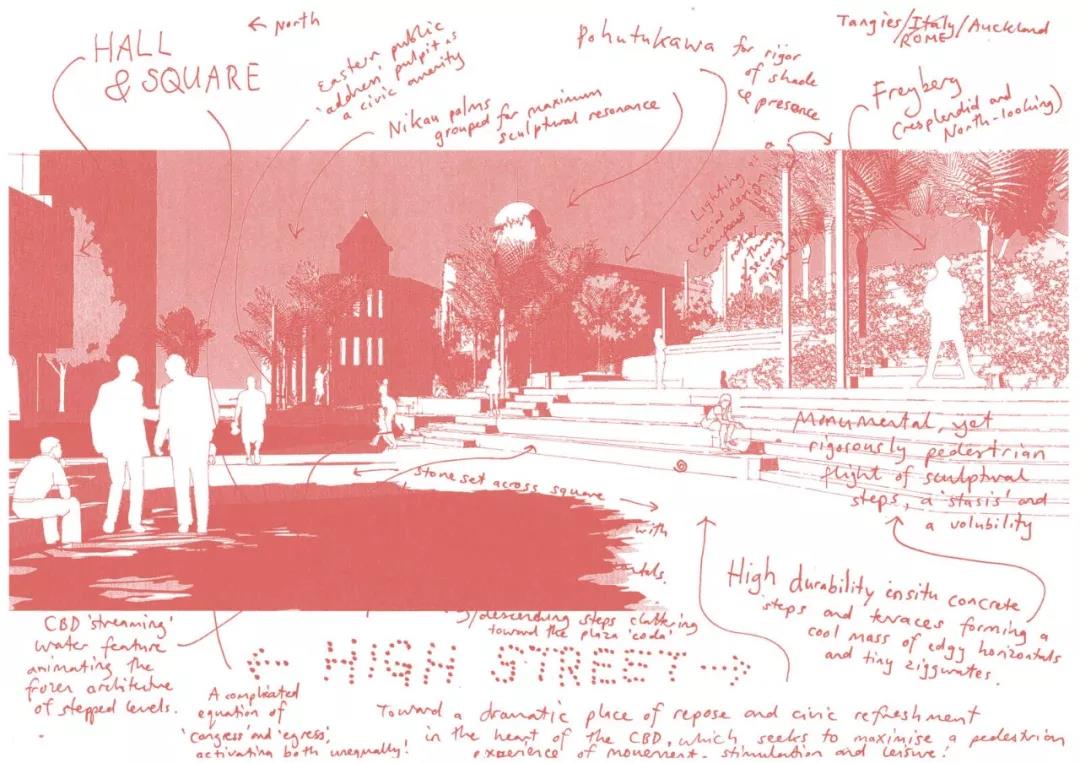 ← North
HALL
& SQUARE
Eastern public
'address' pulpit as
a civic amenity
Nikau palms
grouped for maximum
sculptural resonance
Pohutukawa for rigor
of shade
& presence
Tangies/Italy/Auckland
ROME
Freyberg
(resplendid and
North-looking)
Lighting as a
crucial design
component
stone set across square
with
Monumental, yet
rigorously pedestrian
flight of sculptural
steps, a 'stasis' and
a volubility
High durability insitu concrete
steps and terraces forming a
cool mass of edgy horizontals
and tiny ziggurates.
CBD 'streaming'
water feature
animating the
frozen architecture
of stepped levels.
descending steps cluttering
toward the plaza 'coda'
← HIGH STREET →
A complicated
equation of
'congress' and 'egress',
activating both unequally!
Toward a dramatic place of repose and civic refreshment
in the heart of the CBD, which seeks to maximise a pedestrian
experience of movement, stimulation and leisure!